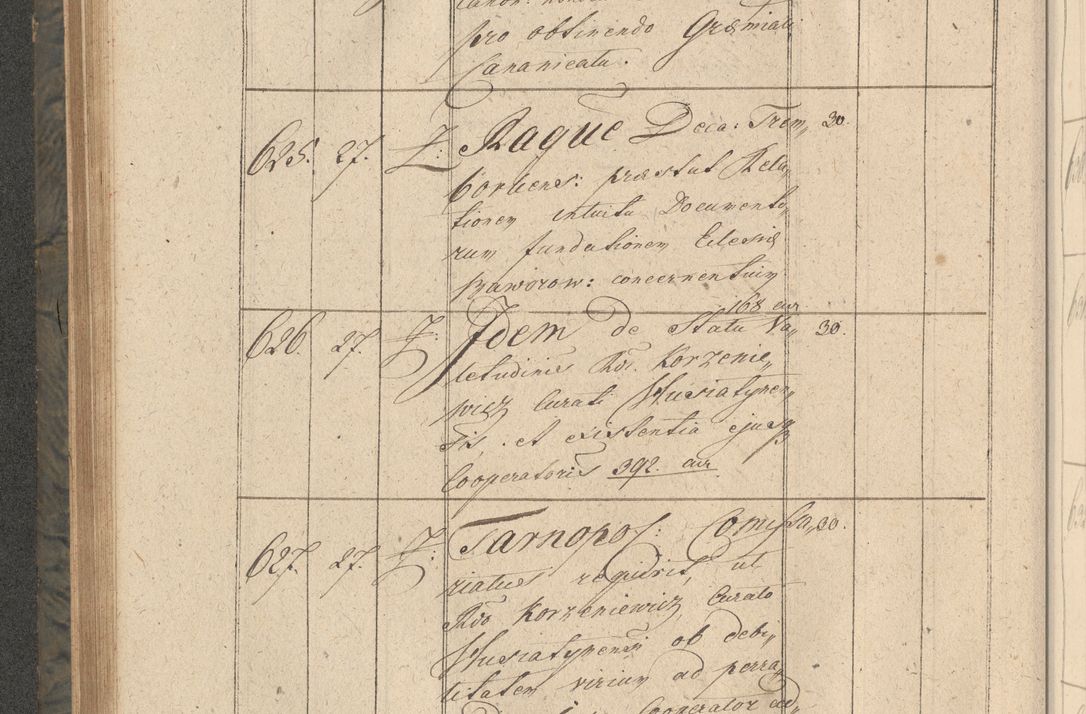 pro obtinendo Gremiali
Cananicatu.
625. 27. Z: Raque Deca: Trem„ 30.
borliens: præstat Rela„
tionem intuitu Documento„
rum fundationem Eclesiæ
Baworow: concernentium
168 cur
626. 27. Z: Idem de Statu Va„ 30.
letudinis Rdi. Korzenie„
wicz Curati Husiatynen„
sis. et existentia ejusq
Cooperatoris 392. cur
627. 27. Z: Tarnopol: Comissa„ 30.
riatus requirit, ut
Rdo Korzeniewicz Curato
Husiatynensi ob debi„
litatem virium ad perra„
Cooperator ad„